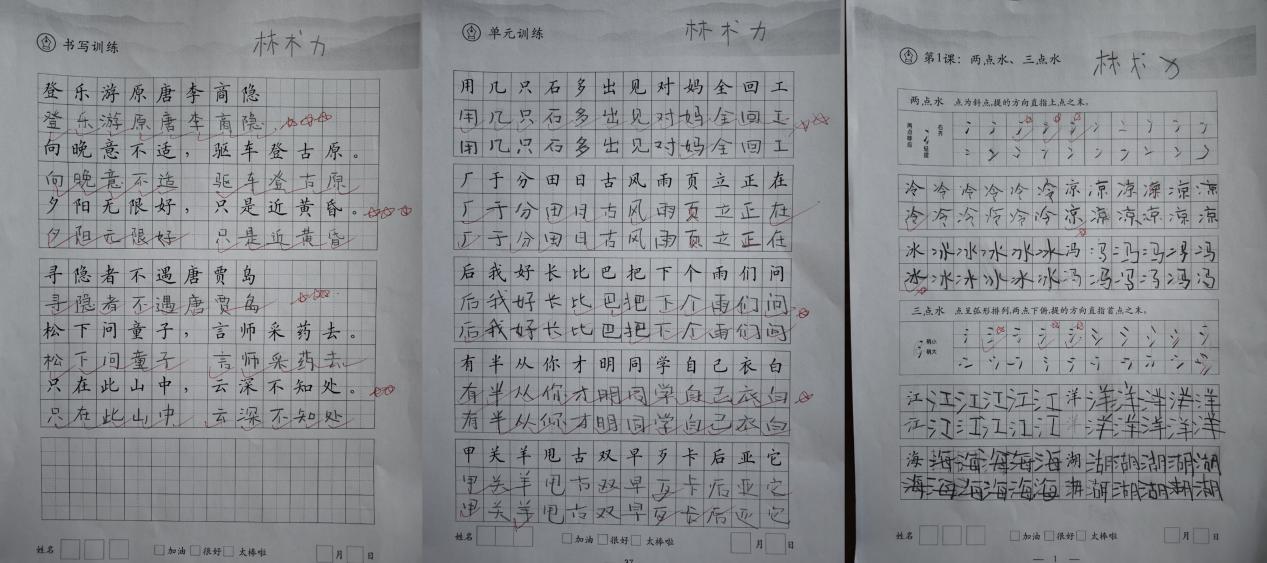 书写训练
林术力
登乐游原唐李商隐
登乐游原唐李商隐
向晚意不适，驱车登古原。
向晚意不适 驱车登古原
夕阳无限好，只是近黄昏。
夕阳无限好 只是近黄昏
寻隐者不遇唐贾岛
寻隐者不遇唐贾岛
松下问童子，言师采药去。
松下问童子 言师采药去
只在此山中，云深不知处。
只在此山中 云深不知处
姓名 加油 很好 太棒啦 月 日
单元训练
林术力
用几只石多出见对妈全回工
用几只石多出见对妈全回工
用几只石多出见对妈全回工
厂于分田日古风雨页立正在
厂于分田日古风雨页立正在
厂于分田日古风雨页立正在
后我好长比巴把下个雨们问
后我好长比巴把下个雨们问
后我好长比巴把下个雨们问
有半从你才明同学自己衣白
有半从你才明同学自己衣白
有半从你才明同学自己衣白
甲关羊甩古双早歹卡后亚它
甲关羊甩古双早歹卡后亚它
甲关羊甩古双早歹卡后亚它
姓名 加油 很好 太棒啦 月 日
37
第1课：两点水、三点水
林术力
两点水 点为斜点,提的方向直指上点之末。
冷冷冷冷冷冷凉凉凉凉凉凉
冷冷冷冷冷冷凉凉凉凉凉凉
冰冰冰冰冰冰冯冯冯冯冯冯
冰冰冰冰冰冰冯冯冯冯冯冯
三点水 点呈弧形排列,两点下俯,提的方向直指首点之末。
稍小
稍大
江江江江江江洋洋洋洋洋洋
江江江江江江洋洋洋洋洋洋
海海海海海海湖湖湖湖湖湖
海海海海海海湖湖湖湖湖湖
姓名 加油 很好 太棒啦 月 日
— 1 —